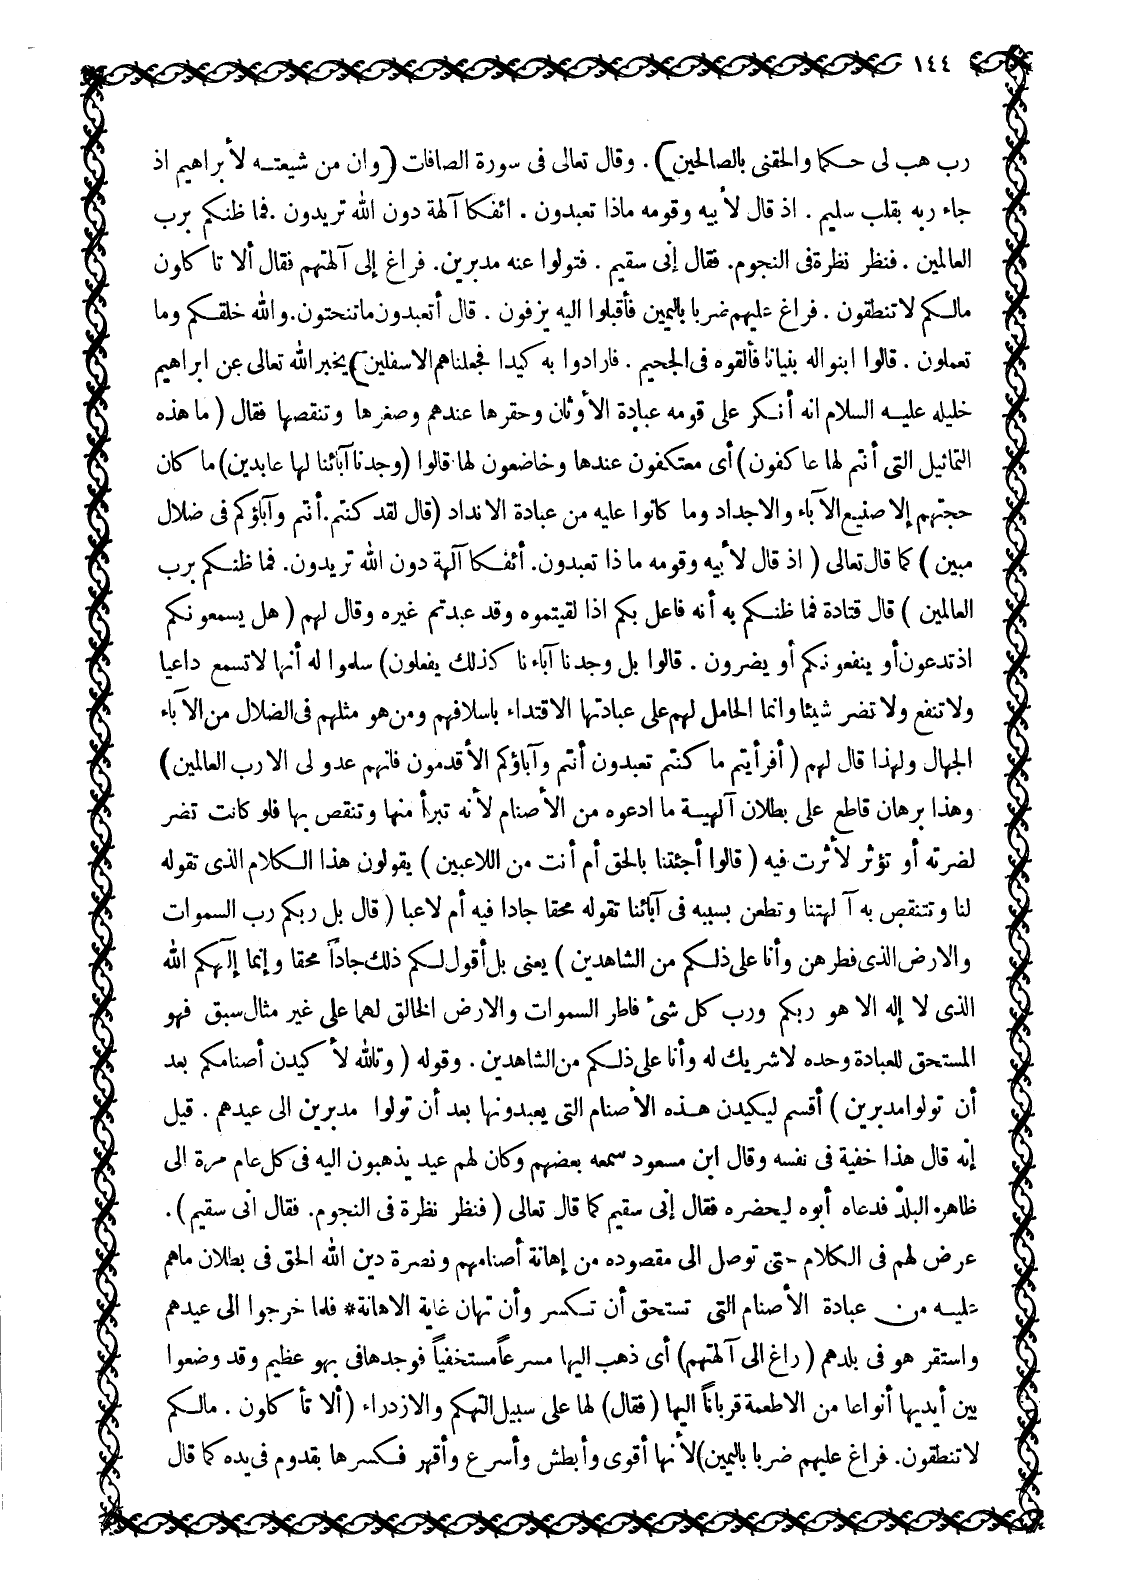 ١٤٤
رب هب لى حكما والحقنى بالصالحين) . وقال تعالى فى سورة الصافات (وان من شيعته لأبراهيم اذ
جاء ربه بقلب سليم . اذ قال لأبيه وقومه ماذا تعبدون . ائفكا آلهة دون الله تريدون . فما ظنكم برب
العالمين . فنظر نظرة فى النجوم. فقال إنى سقيم . فتولوا عنه مدبرين. فراغ إلى آلهتهم فقال ألا تا كاون
مالكم لا تنطقون . فراغ عليهم ضربا باليمين فأقبلوا اليه يزفون . قال أتعبدون ما تنحتون. والله خلقكم وما
تعملون . قالوا ابنوا له بنيانا فألقوه فى الجحيم . فارادوا به كيدا فجعلناهم الاسفلين) يخبر الله تعالى عن ابراهيم
خليله عليه السلام انه أنكر على قومه عبادة الأوثان وحقرها عندهم وصغرها وتنقصها فقال ( ما هذه
التماثيل التى أنتم لها عاكفون) أى معتكفون عندها وخاضعون لها قالوا (وجدنا آبائنا لها عابدين) ما كان
حجتهم إلا صنيع الآباء والاجداد وما كانوا عليه من عبادة الانداد (قال لقد كنتم أنتم وآباؤكم فى ضلال
مبين ) كما قال تعالى ( اذ قال لأبيه وقومه ما ذا تعبدون. أئفكا آلهة دون الله تريدون. فما ظنكم برب
العالمين ) قال قتادة فما ظنكم به أنه فاعل بكم اذا لقيتموه وقد عبدتم غيره وقال لهم ( هل يسمعونكم
اذ تدعون أو ينفعونكم أو يضرون . قالوا بل وجدنا آباءنا كذلك يفعلون) سلموا له أنها لا تسمع داعيا
ولا تنفع ولا تضر شيئا وانما الحامل لهم على عبادتها الاقتداء باسلافهم ومن هو مثلهم فى الضلال من الآباء
الجهال ولهذا قال لهم ( أفرأيتم ما كنتم تعبدون أنتم وآباؤكم الأقدمون فانهم عدو لى الا رب العالمين)
وهذا برهان قاطع على بطلان آلهية ما ادعوه من الأصنام لأنه تبرأ منها وتنقص بها فلو كانت تضر
لضرته أو تؤثر لأثرت فيه ( قالوا أجئتنا بالحق أم أنت من اللاعبين ) يقولون هذا الكلام الذى تقوله
لنا وتتنقص به آلهتنا وتطعن بسببه فى آبائنا تقوله محقا جادا فيه أم لاعبا ( قال بل ربكم رب السموات
والارض الذى فطرهن وأنا على ذلكم من الشاهدين ) يعنى بل أقول لكم ذلك جاداً محقا وإنما إلهكم الله
الذى لا إله الا هو ربكم ورب كل شئ فاطر السموات والارض الخالق لهما على غير مثال سبق فهو
المستحق للعبادة وحده لا شريك له وأنا على ذلكم من الشاهدين . وقوله ( وتالله لأ كيدن أصنامكم بعد
أن تولوا مدبرين ) أقسم ليكيدن هذه الأصنام التى يعبدونها بعد أن تولوا مدبرين الى عيدهم . قيل
إنه قال هذا خفية فى نفسه وقال ابن مسعود سمعه بعضهم وكان لهم عيد يذهبون اليه فى كل عام مرة الى
ظاهر البلد فدعاه أبوه ليحضره فقال إنى سقيم كما قال تعالى ( فنظر نظرة فى النجوم. فقال انى سقيم ) .
عرض لهم فى الكلام حتى توصل الى مقصوده من إهانة أصنامهم ونصرة دين الله الحق فى بطلان ماهم
عليه من عبادة الأصنام التى تستحق أن تكسر وأن تهان غاية الاهانة* فلما خرجوا الى عيدهم
واستقر هو فى بلدهم ( راغ الى آلهتهم) أى ذهب اليها مسرعاً مستخفياً فوجدها فى بهو عظيم وقد وضعوا
بين أيديها أنواعا من الاطعمة قرباناً اليها ( فقال) لها على سبيل التهكم والازدراء ( ألا تأ كاون . مالكم
لا تنطقون. فراغ عليهم ضربا باليمين) لأنها أقوى وأبطش وأسرع وأقهر فكسرها بقدوم فى يده كما قال